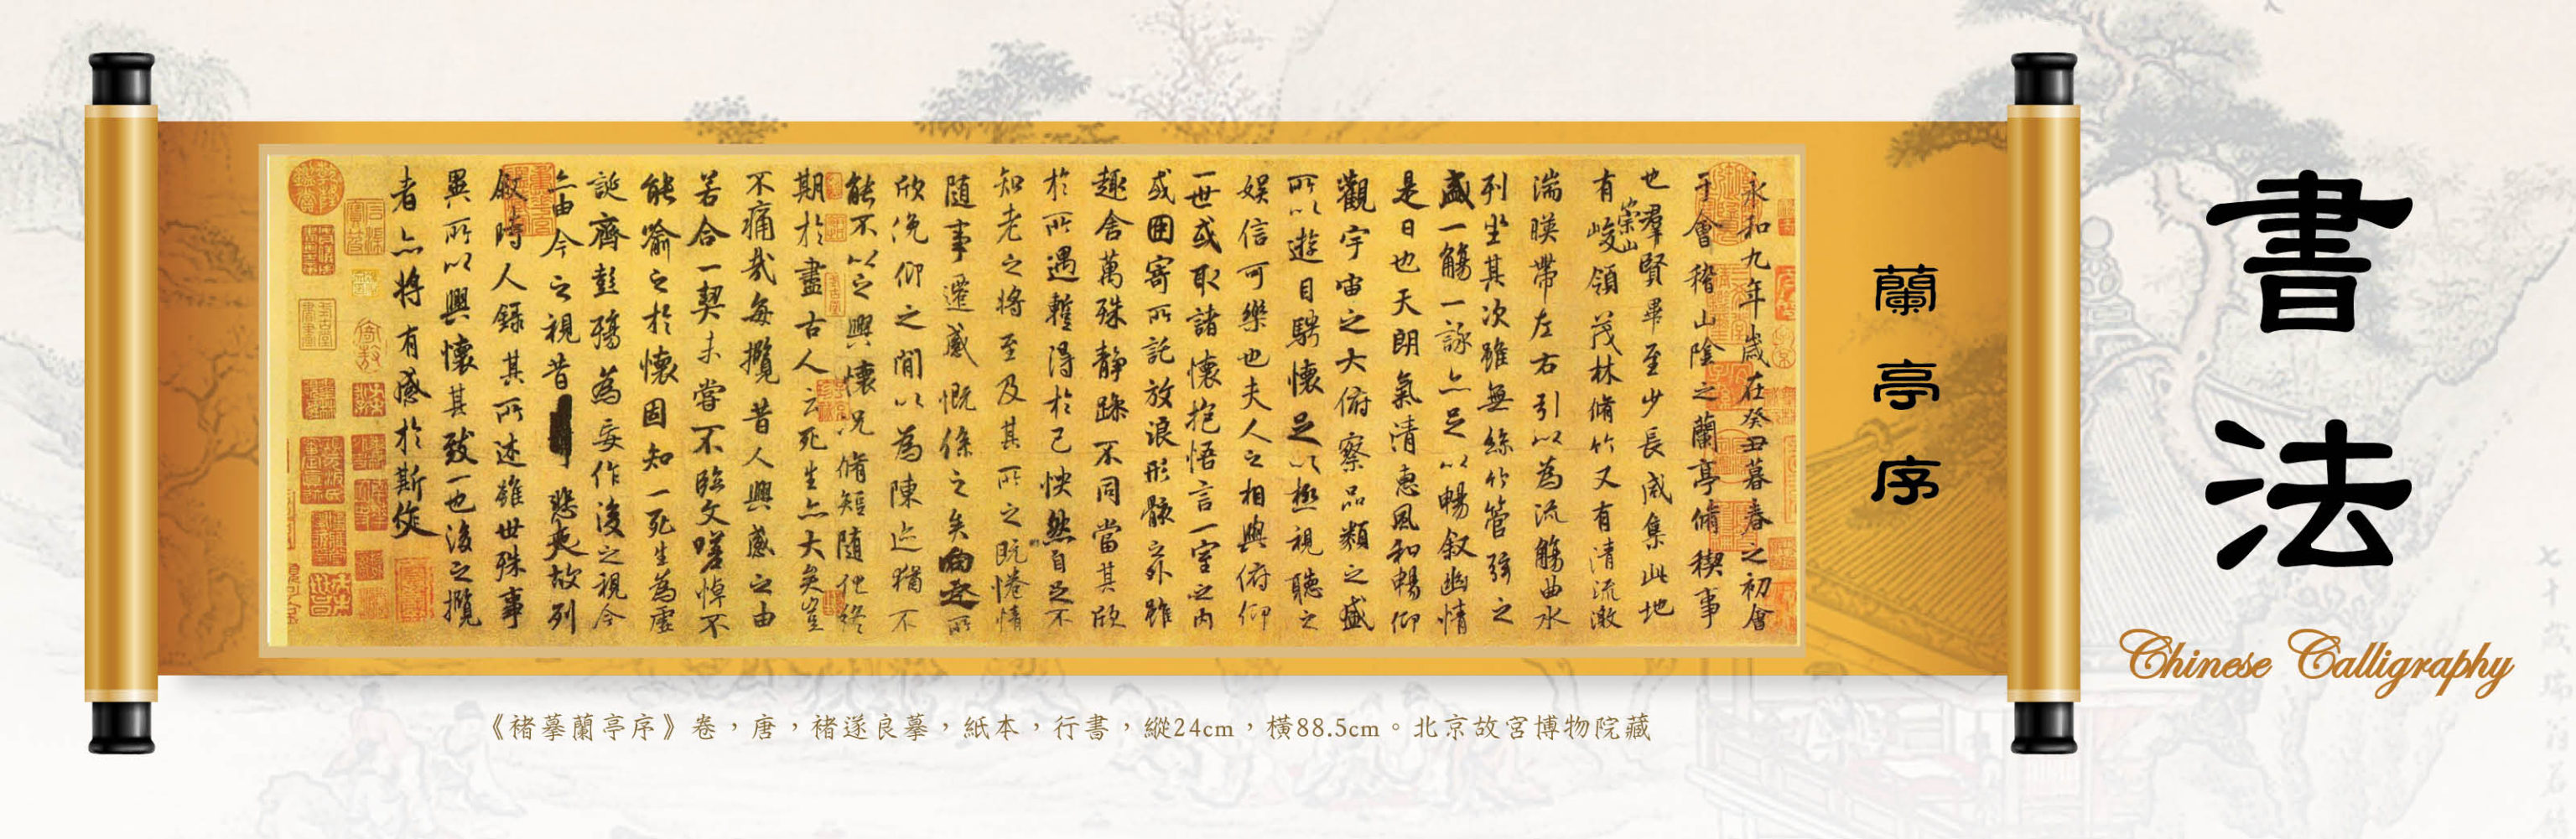 書法
Chinese Calligraphy
蘭亭序
永和九年歲在癸丑暮春之初會
于會稽山陰之蘭亭脩稧事
也羣賢畢至少長咸集此地
有崇山峻領茂林脩竹又有清流激
湍暎帶左右引以為流觴曲水
列坐其次雖無絲竹管弦之
盛一觴一詠亦足以暢叙幽情
是日也天朗氣清惠風和暢仰
觀宇宙之大俯察品類之盛
所以遊目騁懷足以極視聽之
娛信可樂也夫人之相與俯仰
一世或取諸懷抱悟言一室之內
或因寄所託放浪形骸之外雖
趣舍萬殊靜躁不同當其欣
於所遇蹔得於己怏然自足不
知老之將至及其所之既惓情
隨事遷感慨係之矣向之所
欣俛仰之間以為陳迹猶不
能不以之興懷況脩短隨化終
期於盡古人云死生亦大矣豈
不痛哉每攬昔人興感之由
若合一契未嘗不臨文嗟悼不
能喻之於懷固知一死生為虛
誕齊彭殤為妄作後之視今
亦由今之視昔悲夫故列
敘時人錄其所述雖世殊事
異所以興懷其致一也後之攬
者亦將有感於斯文
《褚摹蘭亭序》卷，唐，褚遂良摹，紙本，行書，縱24cm，橫88.5cm。北京故宮博物院藏